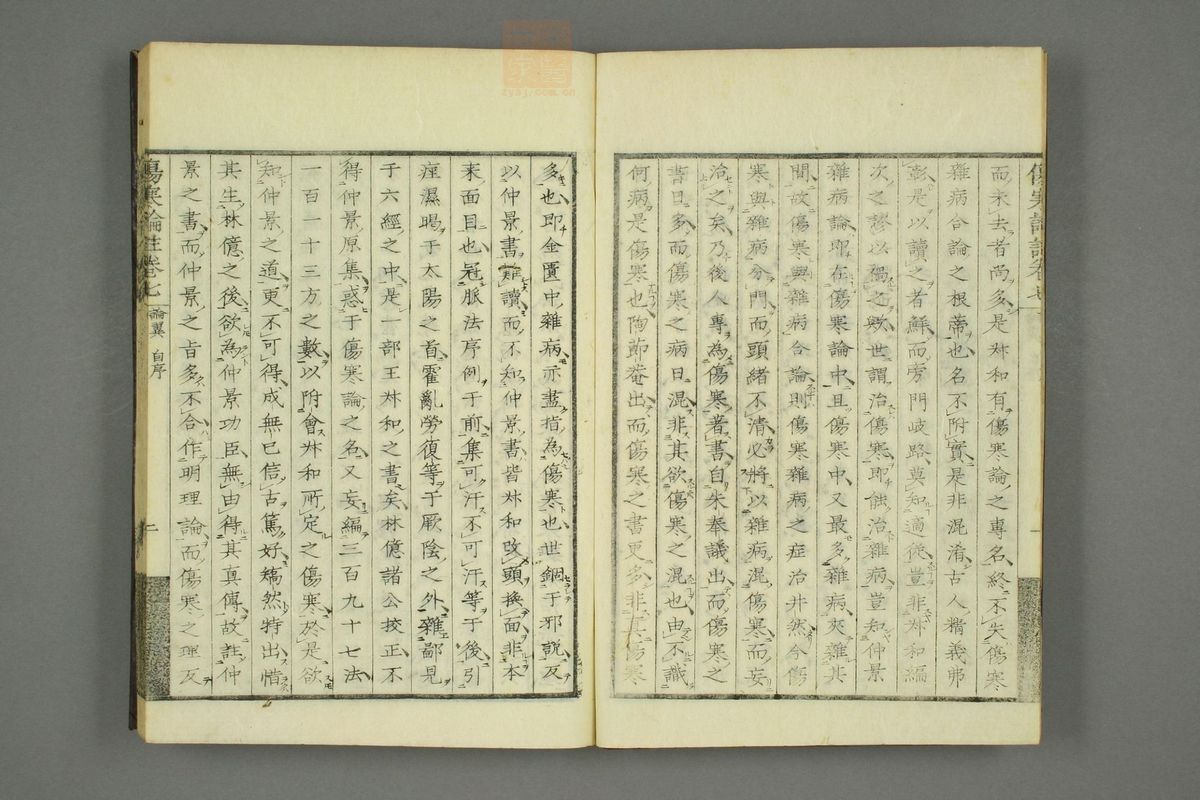 而未去者尚多是叔和有傷寒論之專名終不失傷寒
雜病合論之根蒂也名不附實是非混淆古人精義弗
彰是以讀之者鮮而旁門岐路莫知適從豈非叔和編
次之謬以禍之歟世謂治傷寒即能治雜病豈知仲景
雜病論即在傷寒論中且傷寒中又最多雜病夾雜其
間故傷寒與雜病合論則傷寒雜病之症治井然今傷
寒與雜病分門而頭緒不清必將以雜病混傷寒而妄
治之矣乃後人專為傷寒著書自朱奉議出而傷寒之
書日多而傷寒之病日混非其欲傷寒之混也由不識
何病是傷寒也陶節菴出而傷寒之書更多非真傷寒
傷寒論註卷七
多也即金匱中雜病亦盡指為傷寒也世錮于邪說反
以仲景書難讀而不知仲景書皆叔和改頭換面非本
來面目也冠脈法序例于前集可汗不可汗等于後引
痓濕暍于太陽之首霍亂勞復等于厥陰之外雜鄙見
于六經之中是一部王叔和之書矣林億諸公挍正不
得仲景原集惑于傷寒論之名又妄編三百九十七法
一百一十三方之數以附會叔和所定之傷寒於是欲
知仲景之道更不可得成無已信古篤好矯然特出惜
其生林億之後欲為仲景功臣無由得其真傳故註仲
景之書而仲景之旨多不合作明理論而傷寒之理反
傷寒論註卷七 論翼 自序
zysj.com.cn